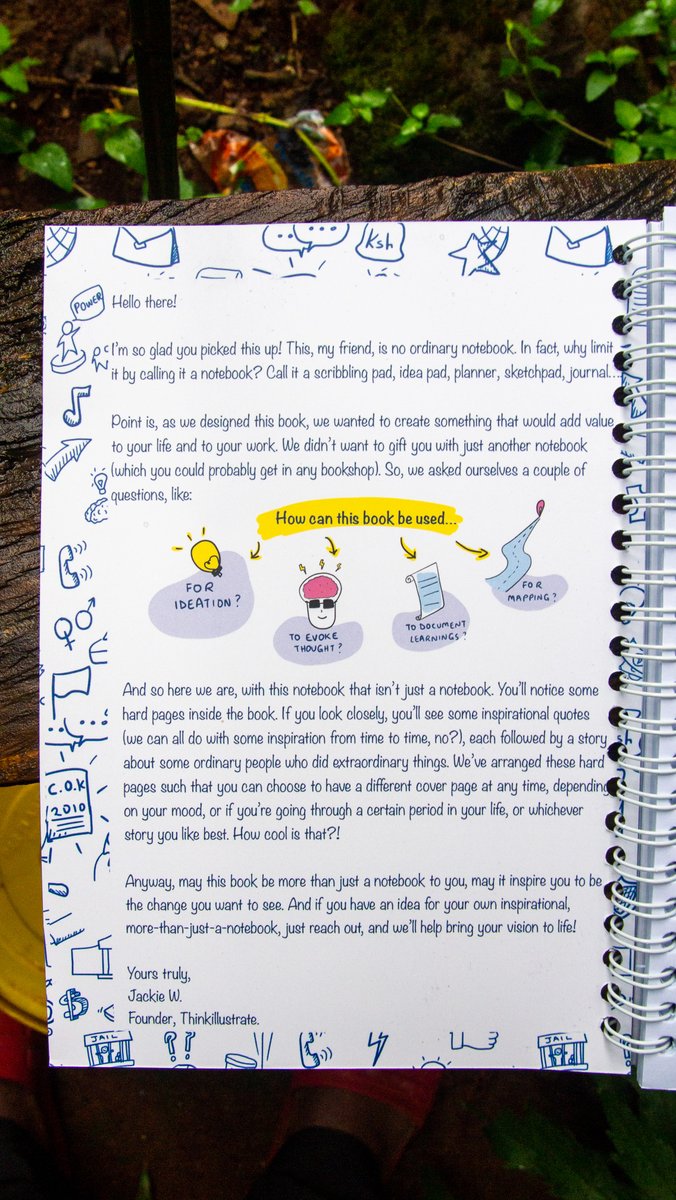 Ksh
POWER
Hello there!
I'm so glad you picked this up! This, my friend, is no ordinary notebook. In fact, why limit
it by calling it a notebook? Call it a scribbling pad, idea pad, planner, sketchpad, journal...
Point is, as we designed this book, we wanted to create something that would add value
to your life and to your work. We didn't want to gift you with just another notebook
(which you could probably get in any bookshop). So, we asked ourselves a couple of
questions, like:
How can this book be used...
FOR
IDEATION?
TO EVOKE
THOUGHT?
TO DOCUMENT
LEARNINGS?
FOR
MAPPING?
And so here we are, with this notebook that isn't just a notebook. You'll notice some
hard pages inside the book. If you look closely, you'll see some inspirational quotes
(we can all do with some inspiration from time to time, no?), each followed by a story
about some ordinary people who did extraordinary things. We've arranged these hard
pages such that you can choose to have a different cover page at any time, depending
on your mood, or if you're going through a certain period in your life, or whichever
story you like best. How cool is that?!
C.O.K
2010
Anyway, may this book be more than just a notebook to you, may it inspire you to be
the change you want to see. And if you have an idea for your own inspirational,
more-than-just-a-notebook, just reach out, and we'll help bring your vision to life!
Yours truly,
Jackie W.
Founder, Thinkillustrate.
$
JAIL
??
JAIL